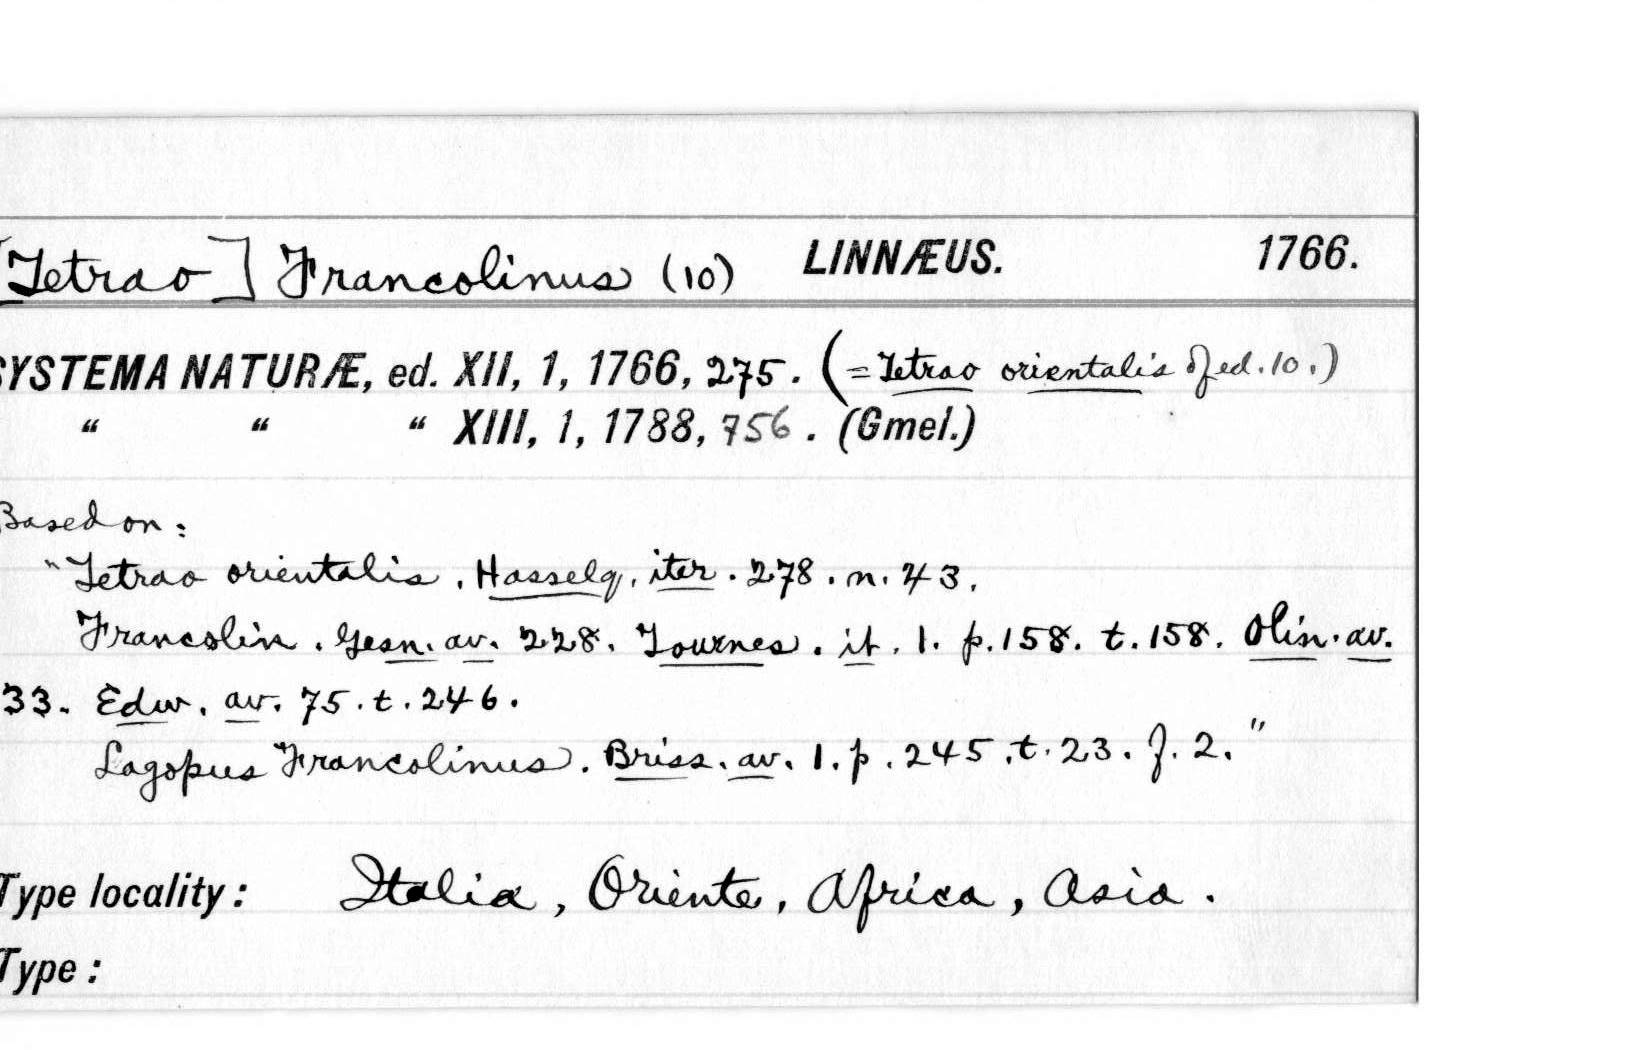 [Tetrao] Francolinus (10) LINNÆUS. 1766.
SYSTEMA NATURÆ, ed. XII, 1, 1766, 275. (= Tetrao orientalis of ed. 10.)
“ “ “ XIII, 1, 1788, 756. (Gmel.)
Based on:
"Tetrao orientalis. Hasselq. iter. 278. n. 43.
Francolin. Gesn. av. 228. Tournes. it. 1. p. 158. t. 158. Olin. av.
33. Edw. av. 75. t. 246.
Lagopus Francolinus. Briss. av. 1. p. 245. t. 23. f. 2."
Type locality: Italia, Oriente, Africa, Asia.
Type: